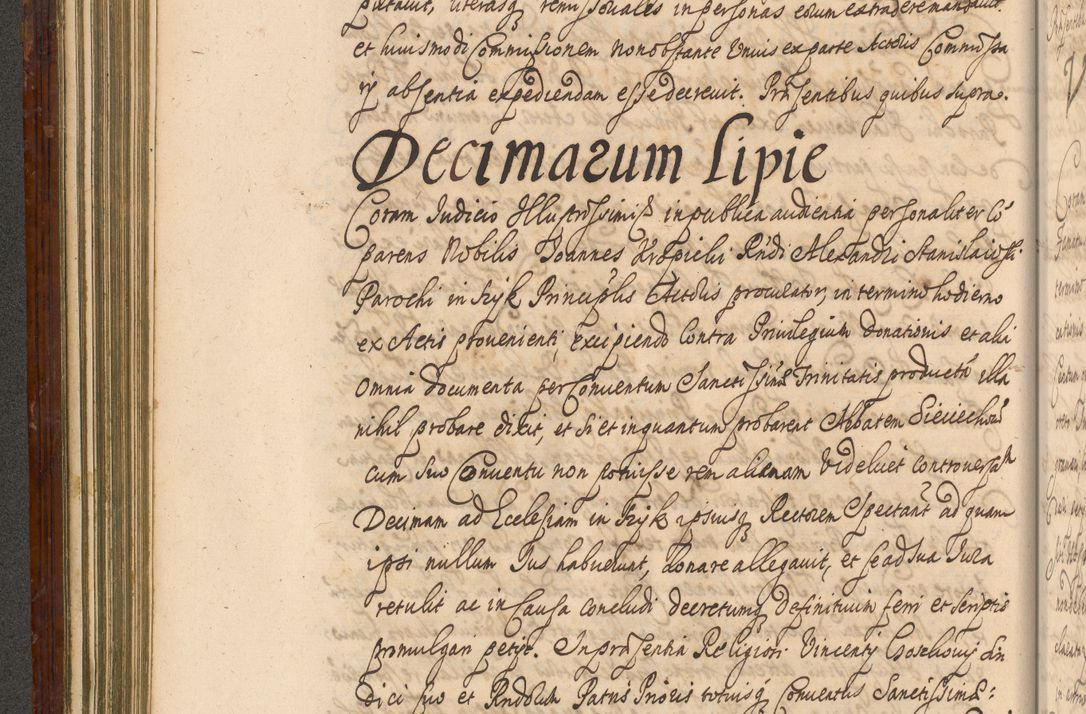 petauit, literasq remissoriales in personas eorum extradere mandauit
et huiusmodi Commissionem non obstante vnius ex parte Actoris Commissa
rij absentia expediendam esse decreuit. Prae sentibus quibus supra.
Decimarum Lipie
Coram Judicio Illustrissimi in publica audientia personaliter Co
parens Nobilis Joannes Kropicki Rndi Alexandri Stanislawski
Parochi in Ryk Principlis Actoris procurator, in termino hodierno
ex Actis proueniente, excipiendo Contra Priuilegium donationis et alia
omnia documenta per Conuentum Sanctissimae Trinitatis producta illa
nihil probare dixit, et si et inquantum probarent Abbatem Sieciechou
cum suo Conuentu non potuisse rem alienam videlicet controuersam
Decimam ad Ecclesiam in Ryk ipsiusq Rectorem Spectantem ad quam
ipsi nullum Jus habuerunt, donare allegauit, et se ad sua Jura
retulit ac in Causa concludi decretumq Definitiuum ferri et scriptis
promulgari petijt. In praesentia Religiosi Vincentij din
dici suo et Rndorum Patrum Prioris totiusq Conuentus Sanctissimae